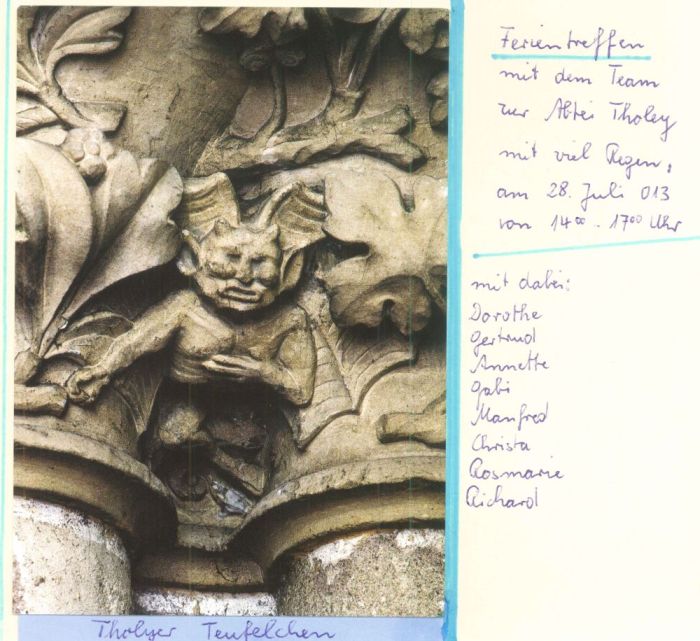 Ferientreffen
mit dem Team
zur Abtei Tholey
mit viel Regen,
am 28. Juli 013
von 14⁰⁰ - 17⁰⁰ Uhr
mit dabei:
Dorothe
Gertrud
Annette
Gabi
Manfred
Christa
Rosmarie
Richard
Tholyer Teufelchen